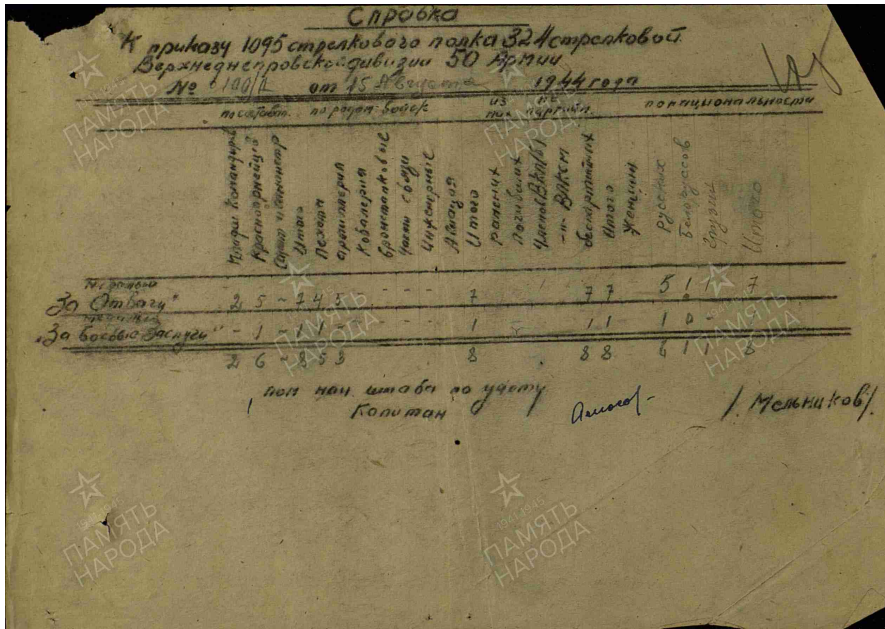 Справка
К приказу 1095 стрелкового полка 324 стрелковой
Верхнеднепровской дивизии 50 Армии
№ 100/п от 15 Августа 1944 года
по составам по родам войск из них по партийн. по национальности
Красноармейцев
Итого
Пехота
Артиллерия
Кавалерия
Бронетанковые
Части связи
Инженерные
Авиация
Итого
раненых
Погибших
Членов ВКП(б)
-"- ВЛКСМ
беспартийных
Итого
Женщин
Русских
Белоруссов
Грузин
Итого
медалью
"За Отвагу" 2 5 - 7 4 3 - - - - - 7 - - - - 7 7 - 5 1 1 7
медалью
"За боевые заслуги" - 1 - 1 1 - - - - 1 - - 1 1 - 1
2 6 - 8 5 3 8 8 8 6 1 1 8
пом нач. штаба по учету
Капитан /Мельников/.
ПАМЯТЬ НАРОДА
ПАМЯТЬ НАРОДА
ПАМЯТЬ НАРОДА
ПАМЯТЬ НАРОДА
ПАМЯТЬ НАРОДА
ПАМЯТЬ НАРОДА